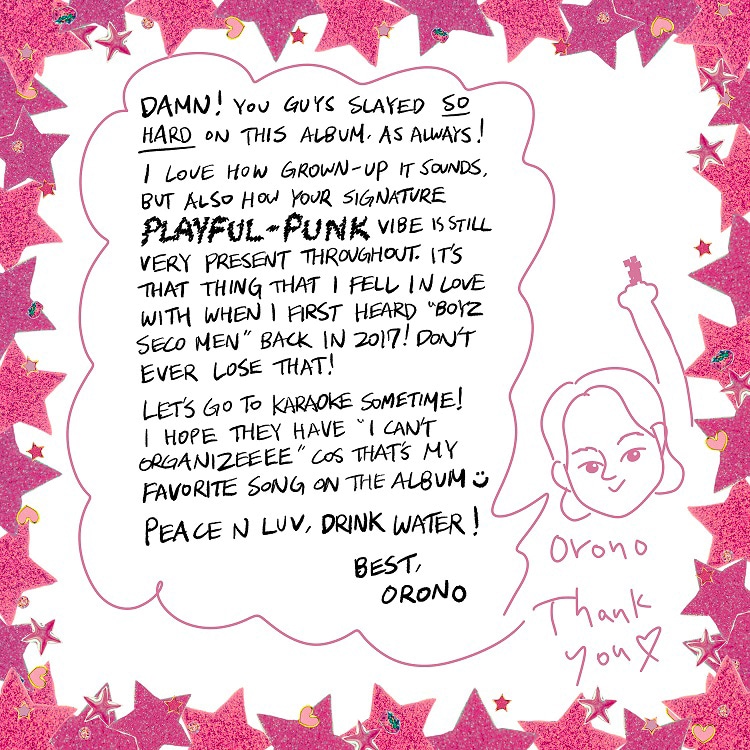 DAMN! YOU GUYS SLAYED SO
HARD ON THIS ALBUM. AS ALWAYS!
I LOVE HOW GROWN-UP IT SOUNDS,
BUT ALSO HOW YOUR SIGNATURE
PLAYFUL-PUNK VIBE IS STILL
VERY PRESENT THROUGHOUT. IT'S
THAT THING THAT I FELL IN LOVE
WITH WHEN I FIRST HEARD "BOYZ
SECO MEN" BACK IN 2017! DON'T
EVER LOSE THAT!
LET'S GO TO KARAOKE SOMETIME!
I HOPE THEY HAVE "I CAN'T
ORGANIZEEEE" COS THAT'S MY
FAVORITE SONG ON THE ALBUM
PEACE N LUV, DRINK WATER!
BEST,
ORONO
Orono
Thank
you